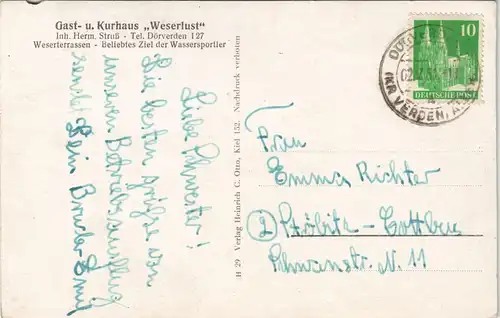 Gast- u. Kurhaus „Weserlust"
Inh. Herm. Struß - Tel. Dörverden 127
Weserterrassen - Beliebtes Ziel der Wassersportler
10
DEUTSCHE POST
(KR VERDEN, A
Liebe Schwester!
Die besten Grüße von
unserem Betriebsausflug
sendet Dein Bruder Emil
H 29 Verlag Heinrich C. Otto, Kiel 152. Nachdruck verboten
Frau
Emma Richter
Ströbitz-Cottbus
Schwanstr. N. 11